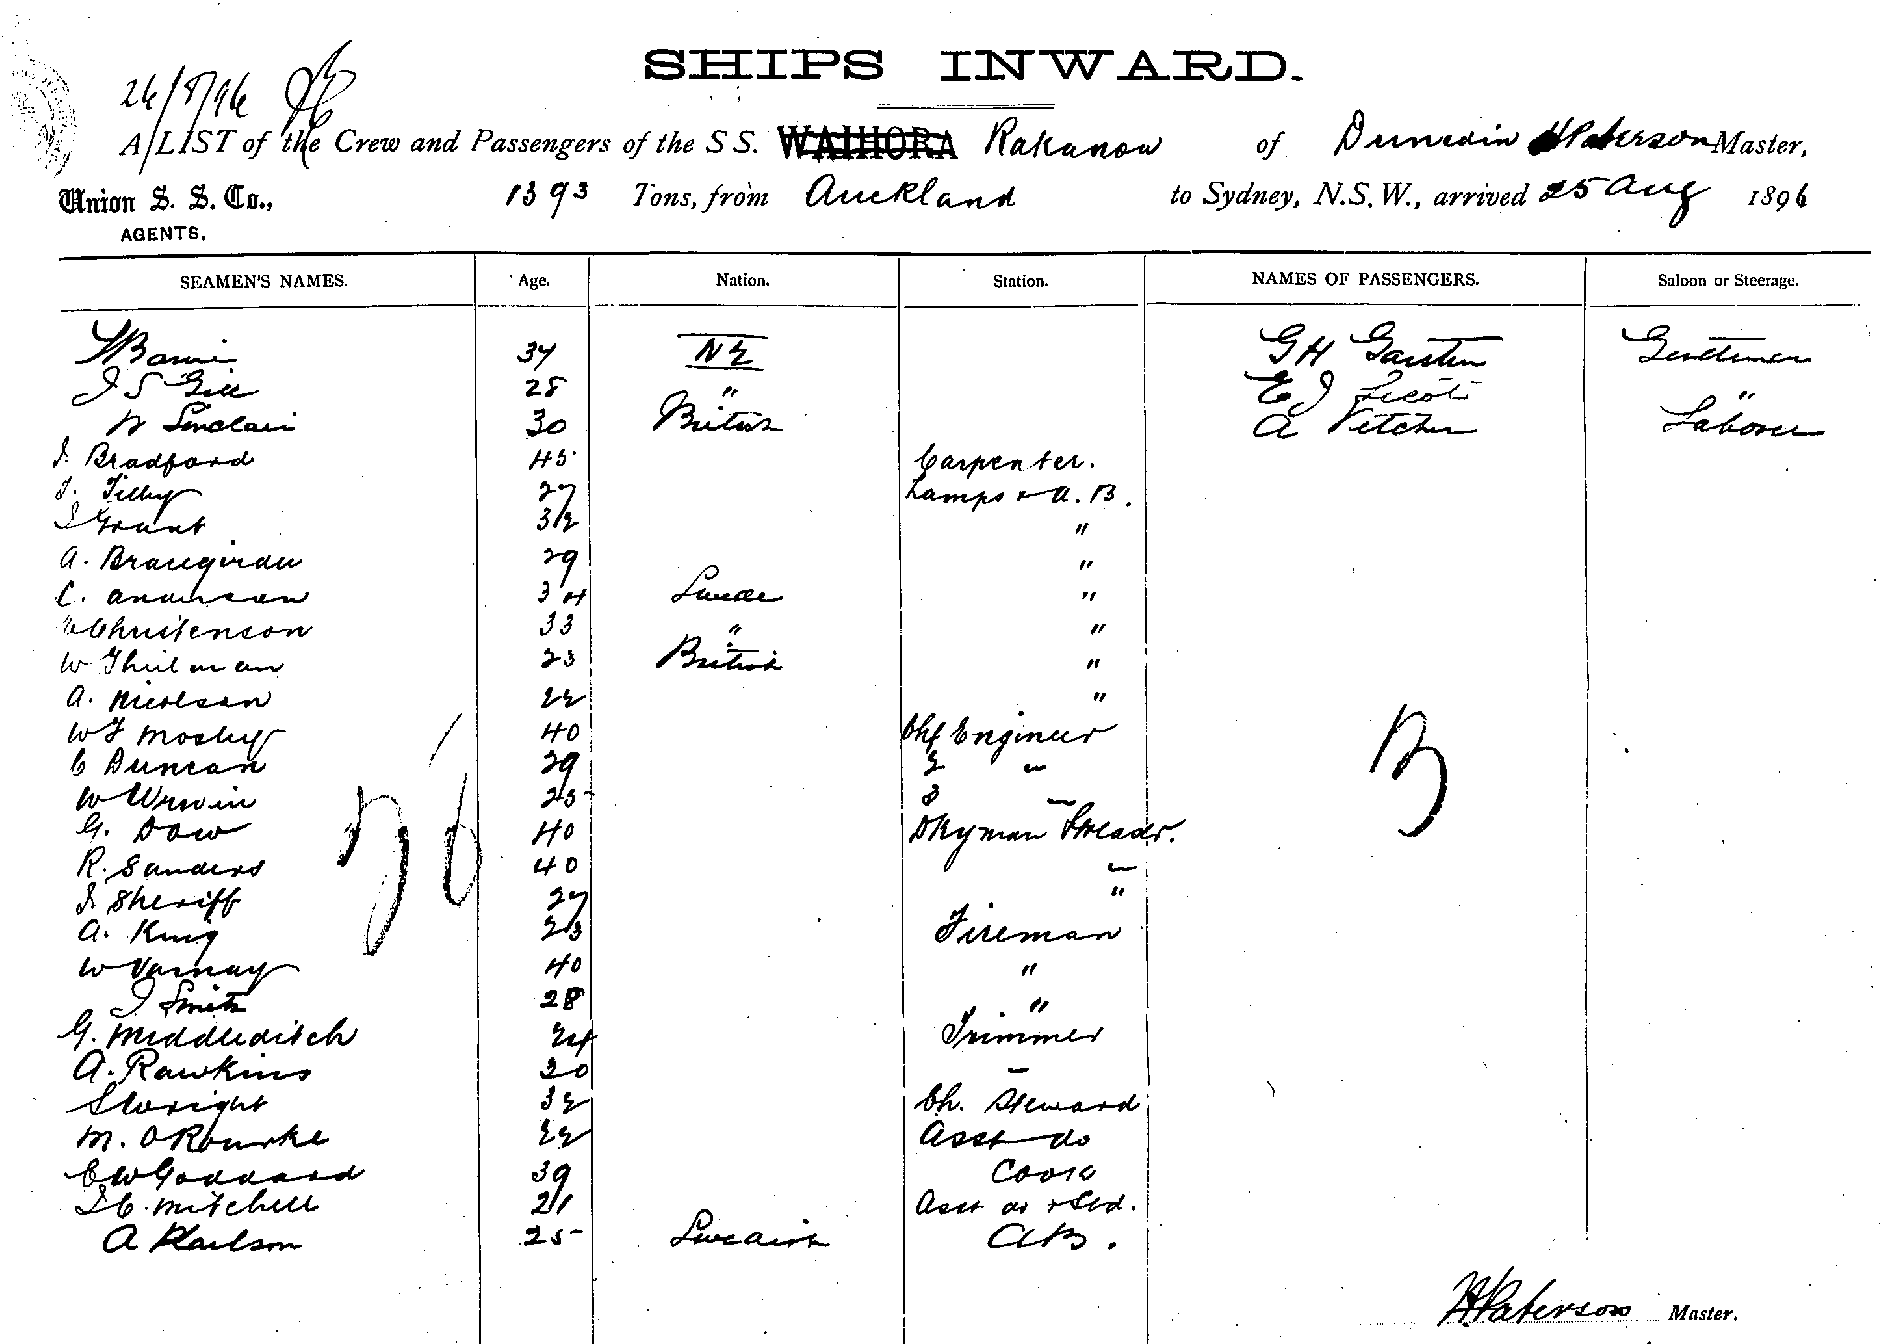 SHIPS INWARD.
26/8/96
A LIST of the Crew and Passengers of the S S. WAIHORA Rakanoa of Dunedin H Paterson Master,
Union S. S. Co., 1393 Tons, from Auckland to Sydney, N.S.W., arrived 25 Aug 1896
AGENTS.
SEAMEN'S NAMES. Age. Nation. Station. NAMES OF PASSENGERS. Saloon or Steerage.
37 NZ G H Garsten Gentleman
J S Gill 28 " E J Scott "
W Sinclair 30 British A Vetcher Laborer
J. Bradford 45 Carpenter.
J. Tilley 27 Lamps & A. B.
J Grant 32 "
A. 29 "
C. Anderson 34 Swede "
Christenson 33 " "
W Thielman 23 British "
A. Nicolson 22 "
W F Mosley 40 Chf Engineer
C Duncan 29 2 "
W Urwin 25 3 "
G. Dow 40 Dkyman & Greaser.
R. Sanders 40 "
J. Sheriff 27 "
A. King 23 Fireman
W Varnay 40 "
J Smith 28 "
G. Middleditch 24 Trimmer
A. Rawkins 20 "
S Wright 32 Ch. Steward
M. O Rourke 22 Asst do
C W Goddard 39 Cook
J C. Mitchell 21 Asst do & Std.
A Karlson 25 Swedish AB.
26
B
H Paterson Master.